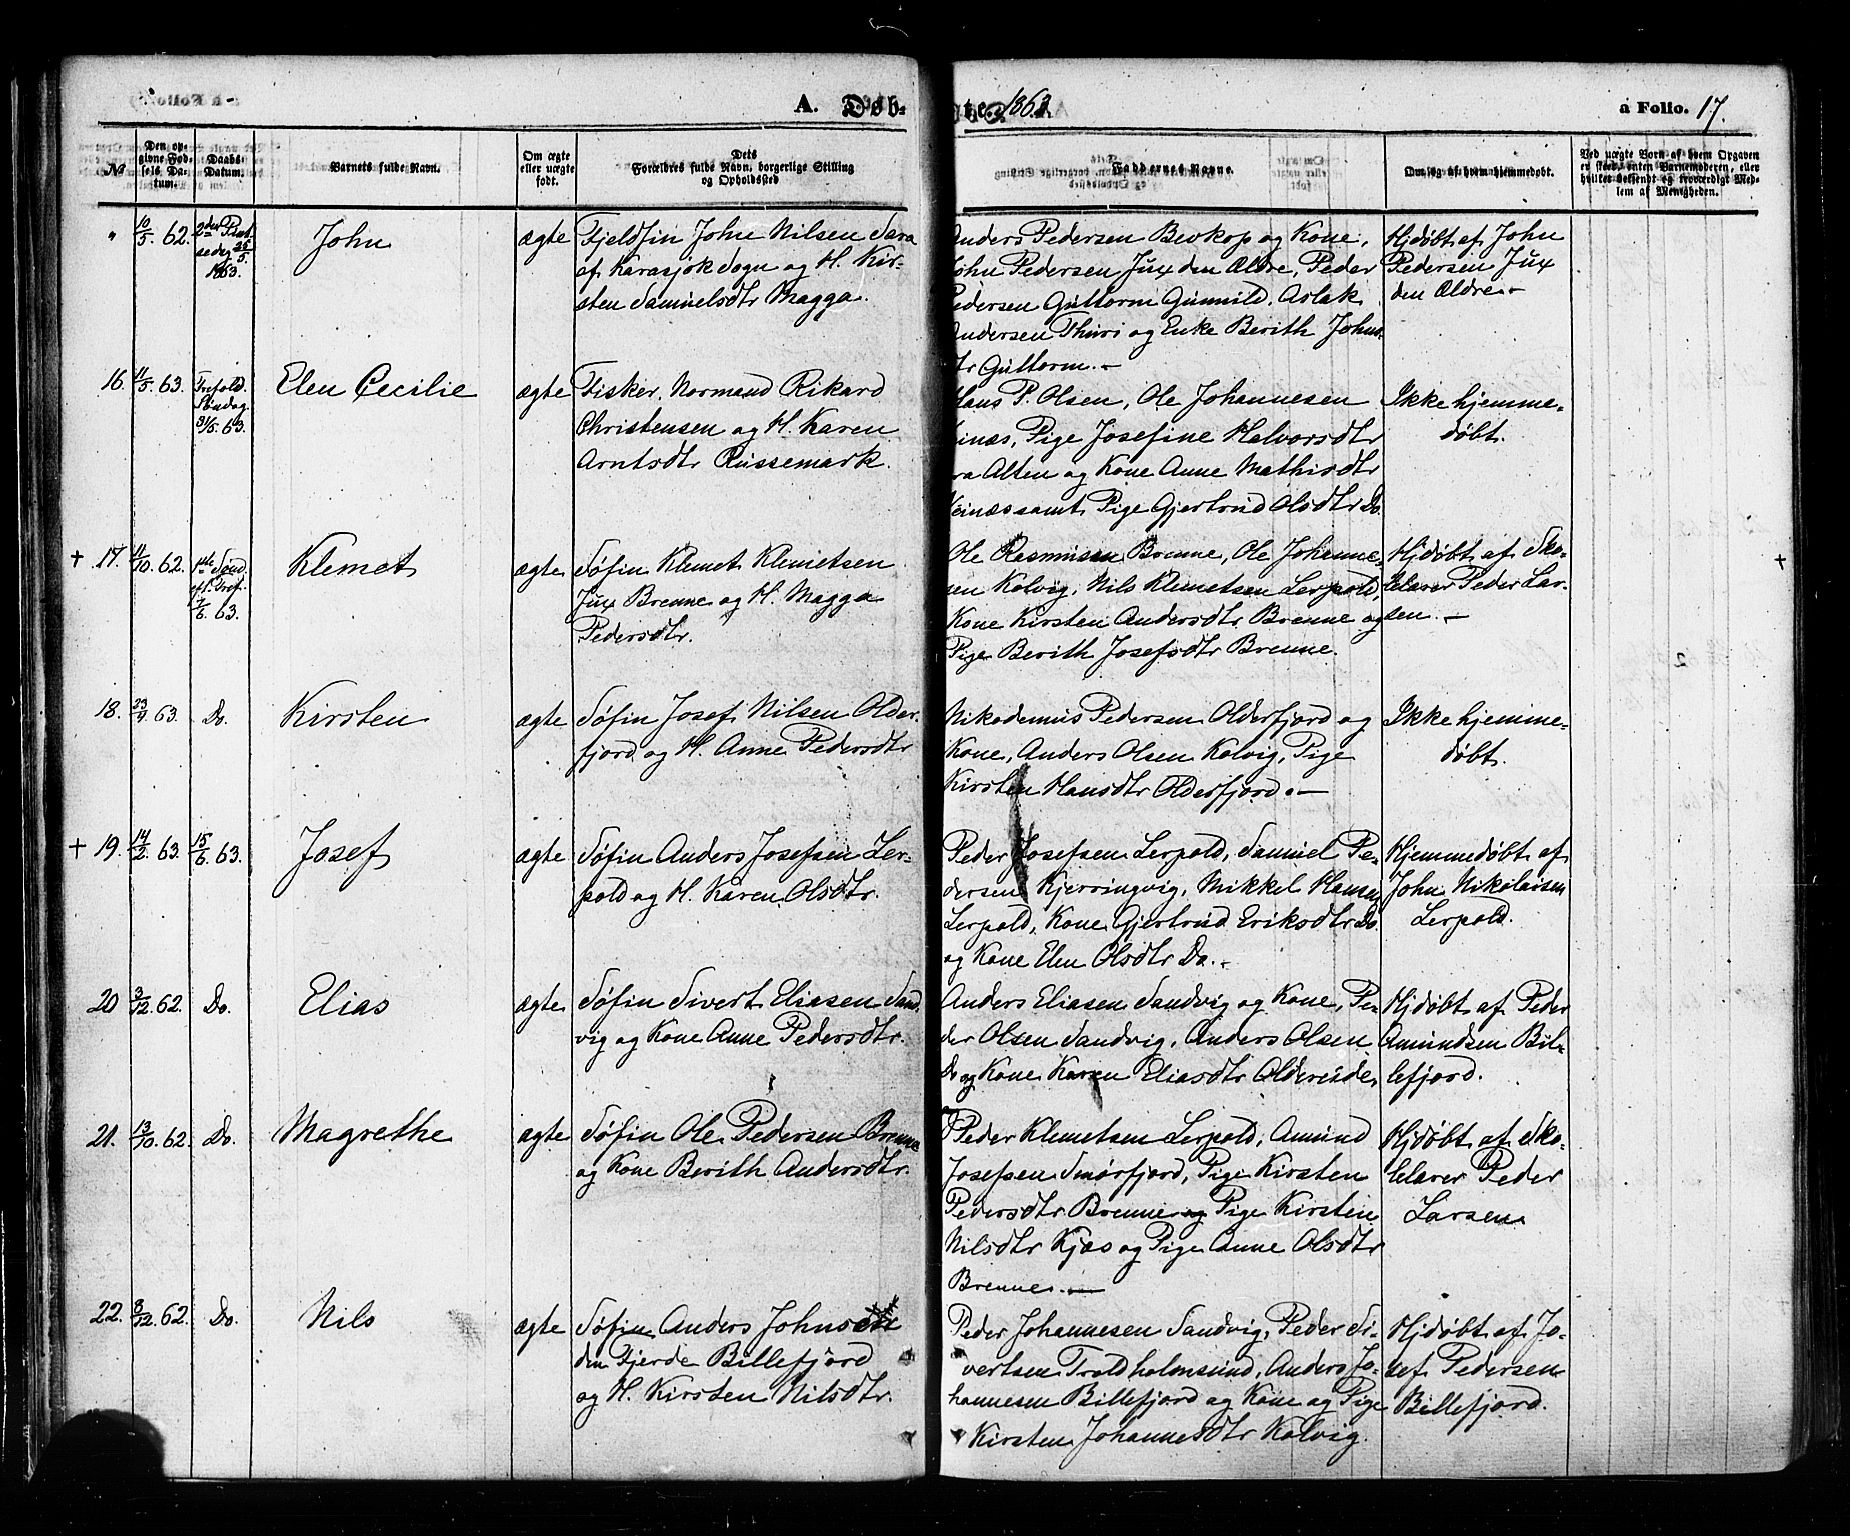 A. Døb-
te. 1863.
a Folio. 17.
No
Den op-
givne Fød-
sels Da-
tum.
Daabs-
Datum.
Barnets fulde Navn.
Om ægte
eller uægte
født.
Dets
Forældres fulde Navn, borgerlige Stilling
og Opholdssted
Faddernes Navne.
Om, og af hvem hjemmedøbt.
Ved uægte Børn af hvem Opgaven
er skeed, enten Barnemoderen, eller
hvilket bekjendt og troværdigt Med-
lem af Menigheden.
" 10/5. 62.
2den Pint-
sedag 25/5
1863.
John
ægte
Fjeldfin John Nilsen Sara
af Karasjok Sogn og H. Kir-
sten Samuelsdtr Magga.
Anders Pedersen Beskop og Kone,
John Pedersen Jux den Ældre, Peder
Pedersen Guttorm Gunnild, Aslak
Andersen Thuri og Enke Berith Johns-
dtr Guttorm.-
Hjdøbt af John
Pedersen Jux
den Ældre.-
16. 11/5. 63.
Trefold.
Søndag
31/5. 63.
Elen Cecilie
ægte
Fisker, Normand Rikard
Christensen og H. Karen
Arntsdtr Russemark.
Hans P. Olsen, Ole Johannesen
Pige Josefine Halvorsdtr
fra Alten og Kone Anne Mathisdtr
samt Pige Gjertrud Olsdtr Do.
Ikke hjemme-
døbt.
+ 17. 11/10. 62.
1ste Sønd.
ef. Tref.
7/6. 63.
Klemet
ægte
Søfin Klemet Klemetsen
Jux Brenne og H. Magga
Pedersdtr.
Ole Rasmusen Brenne, Ole Johanne-
sen Kolvig, Nils Klemetsen Lerpold,
Kone Kirsten Andersdtr Brenne og
Pige Berith Josefsdtr Brenne.
Hjdøbt af Sko-
lelærer Peder Lar-
sen.-
+
18. 23/4. 63.
Do.
Kirsten
ægte
Søfin Josef Nilsen Older-
fjord og H. Anne Pedersdtr
Nikodemus Pedersen Olderfjord og
Kone, Anders Olsen Kolvig, Pige
Kirsten Hansdtr Olderfjord.-
Ikke hjemme-
døbt.
+ 19. 14/2. 63.
15/6. 63.
Josef
ægte
Søfin Anders Josefsen Ler-
pold og H. Karen Olsdtr.
Peder Josefsen Lerpold, Samuel Pe-
dersen Kjerringvig, Mikkel Hansen
Lerpold, Kone Gjertrud Eriksdtr Do
og Kone Elen Olsdtr Do.-
Hjemmedøbt af
John Nikolaisen
Lerpold.
20 3/12. 62.
Do.
Elias
ægte
Søfin Sivert Eliasen Sand-
vig og Kone Anne Pedersdtr.
Anders Eliasen Sandvig og Kone, Pe-
der Olsen Sandvig, Anders Olsen
Do og Kone Karen Eliasdtr Oldereide
Hjdøbt af Peder
Amundsen Bil-
lefjord.
21. 13/10. 62.
Do.
Magrethe
ægte
Søfin Ole Pedersen Brenne
og Kone Berith Andersdtr.
Peder Klemetsen Lerpold, Amund
Josefsen Smørfjord, Pige Kirsten
Pedersdtr Brenne og Pige Kirsten
Nilsdtr Kjæs og Pige Anne Olsdtr
Brenne.-
Hjdøbt af Sko-
lelærer Peder
Larsen.
22. 8/12. 62.
Do.
Nils
ægte
Søfin Anders Johnsen
den Fjerde Billefjord
og H. Kirsten Nilsdtr.
Peder Johannesen Sandvig, Peder Si-
vertsen Troldholmsund, Anders Jo-
hannesen Billefjord og Kone og Pige
Kirsten Johannesdtr Kolvig.
Hjdøbt af Jo-
sef Pedersen
Billefjord.